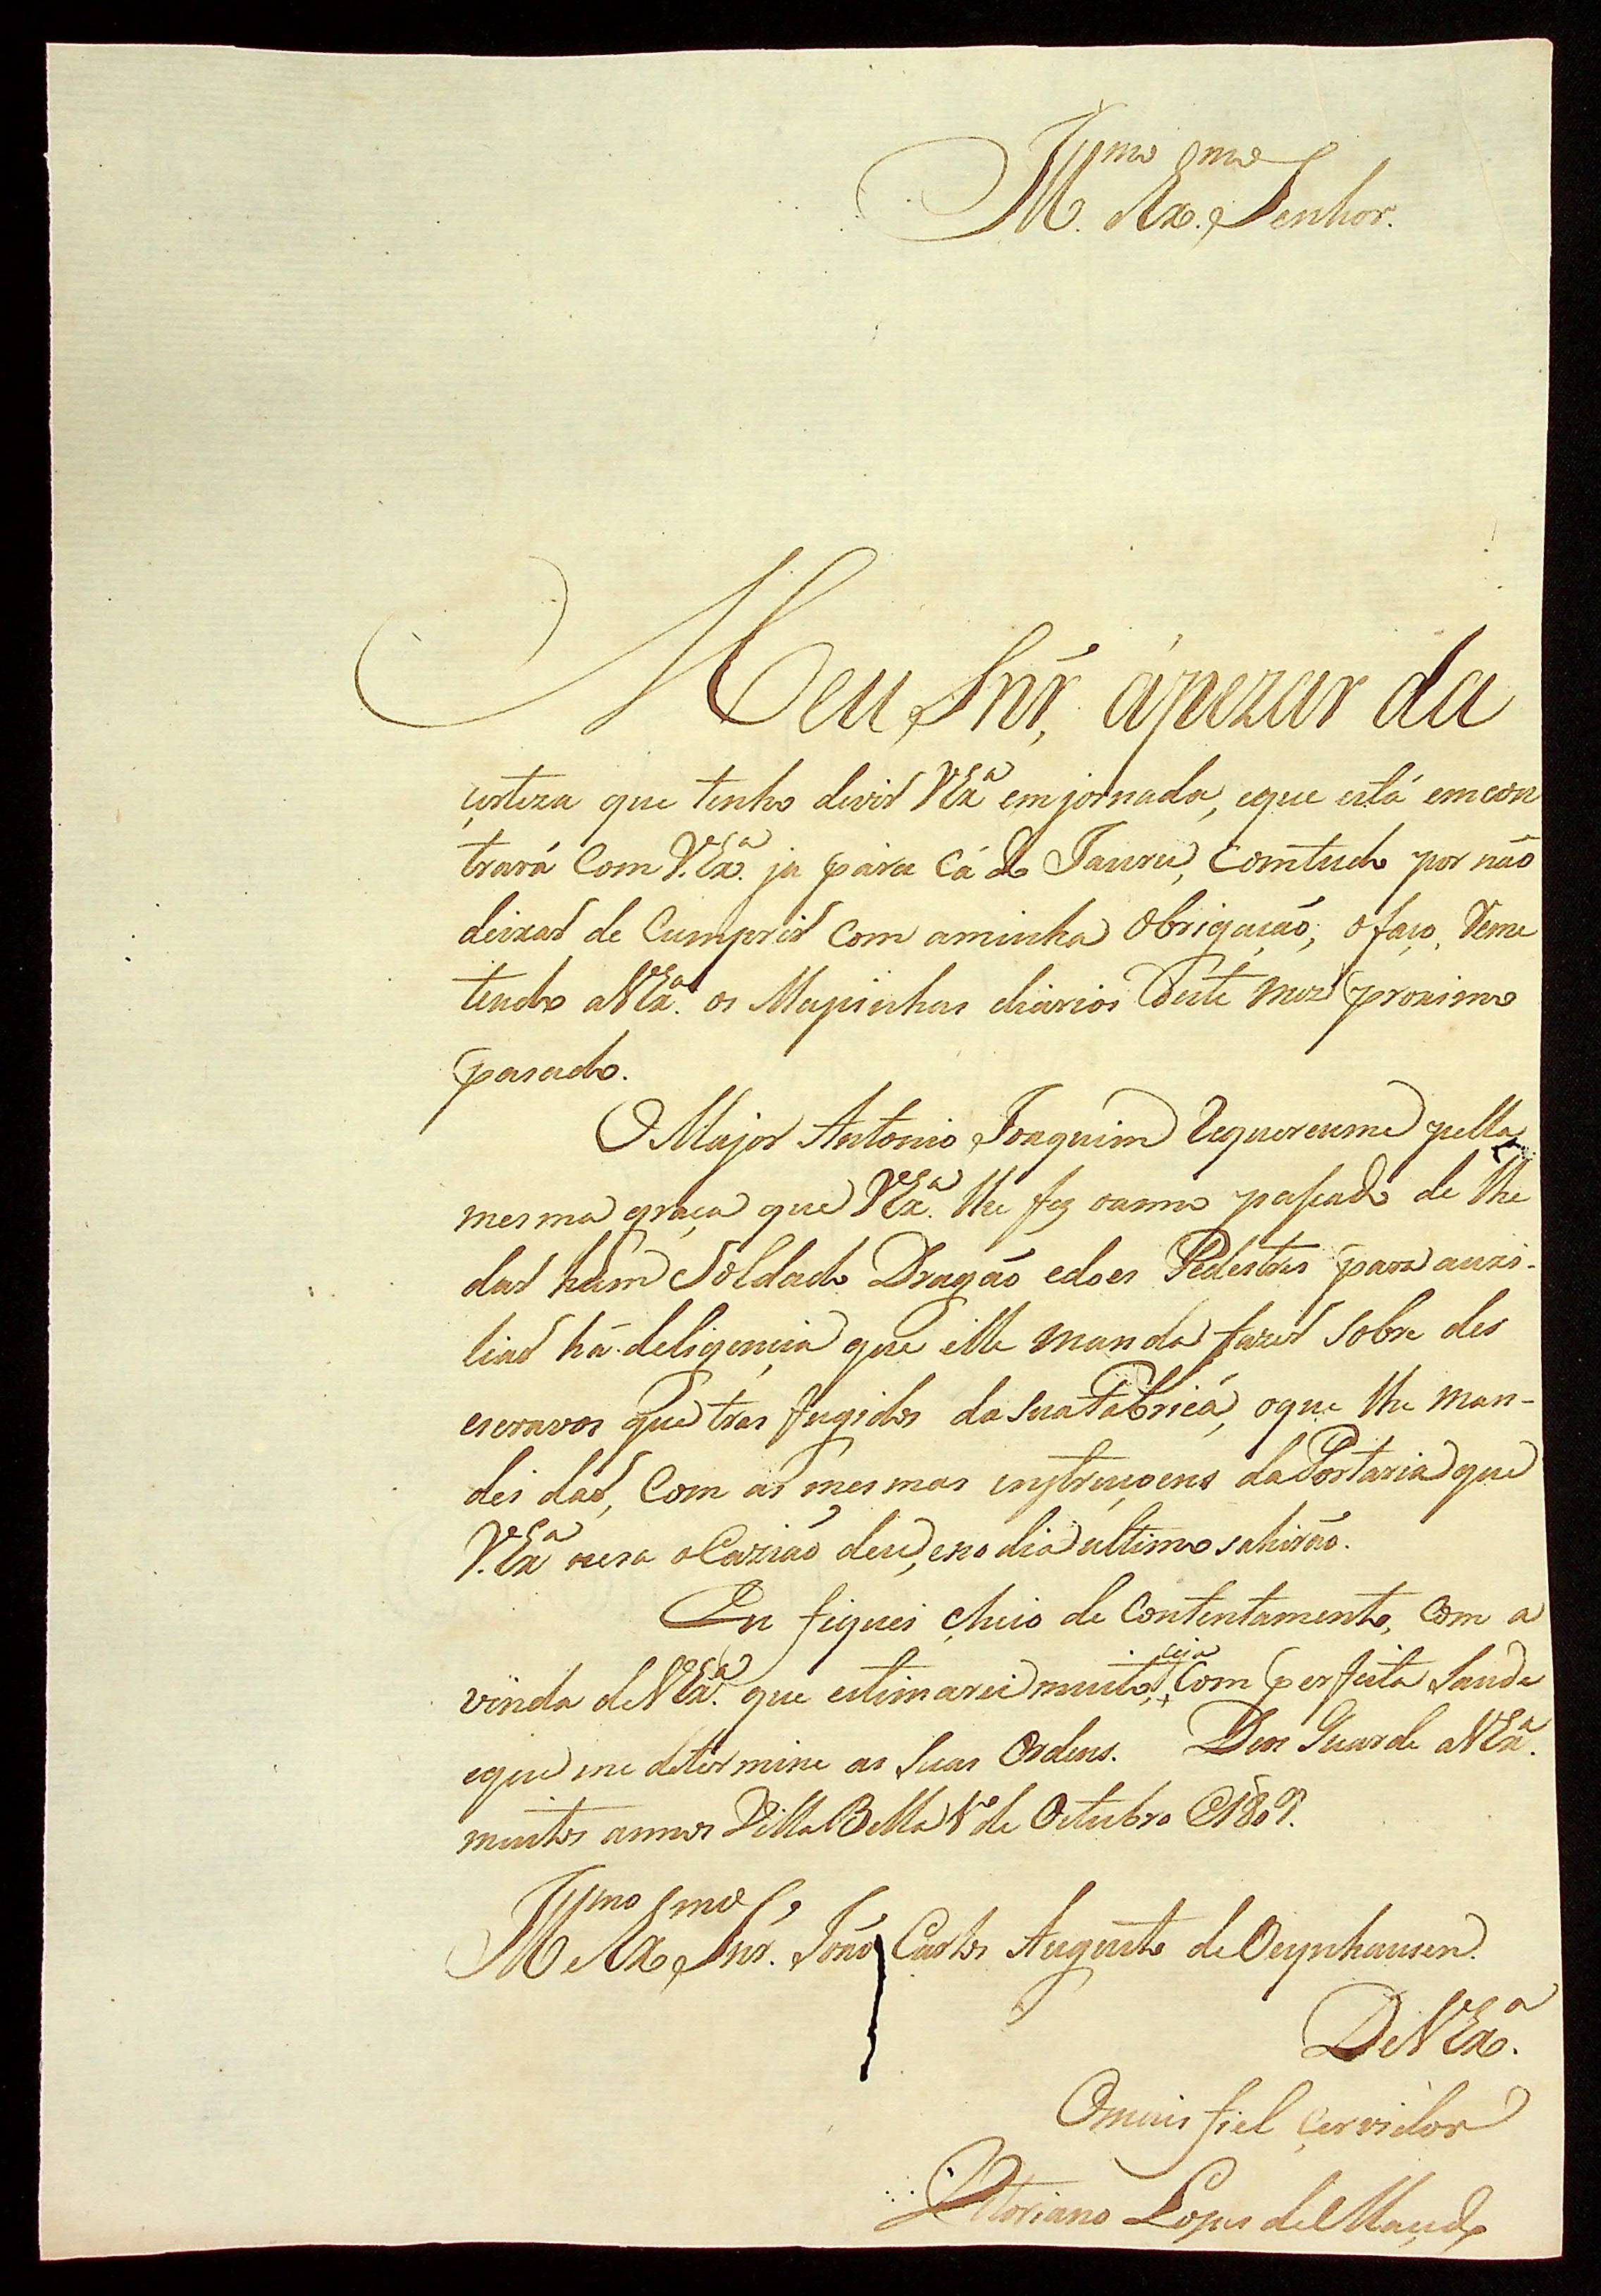 Ill.mo Ex.mo Senhor.
Meu Snr', ápezar da
çerteza que tenho devir V.Ex.a em jornada, eque está emcon
trará Com V.Ex.a ja pára Cá do Jauru, Comtudo por não
deixar de Cumprir com aminha obrigação, o faço, Reme
tendo aV.Ex.a os Mapinhas diarios deste mez proximo
pasado.
O Major Antonio Joaquim Requereume pella
mesma graça que V.Ex.a lhe fez oanno passado de lhe
dar hum Soldado Dragão edoes Pedestres para auxi-
liar hã deligençia que elle manda fazer Sobre des
escravos que tras fugidos da sua Fabricá, oque lhe man-
dei dar, Com as mesmas instruçoens da Portaria que
V.Ex.a nesa oCazião deu, eno dia ultimo sahirão.
Eu fiquei cheio de Contentamento, Com a
vinda deV.Ex.a que estimarei muito, seja Com perfeita Saude
eque me determine as Suas Ordens. Deos Guarde aV.Ex.a
muitos annos Villa Bella 1.o de Octubro de 1809.
Ill.mo Ex.mo Snr'. João Carlos Augusto de Oeynhausen.
DeV.Ex.a
Omais fiel çervidor
Vitoriano Lopes de Maçedo